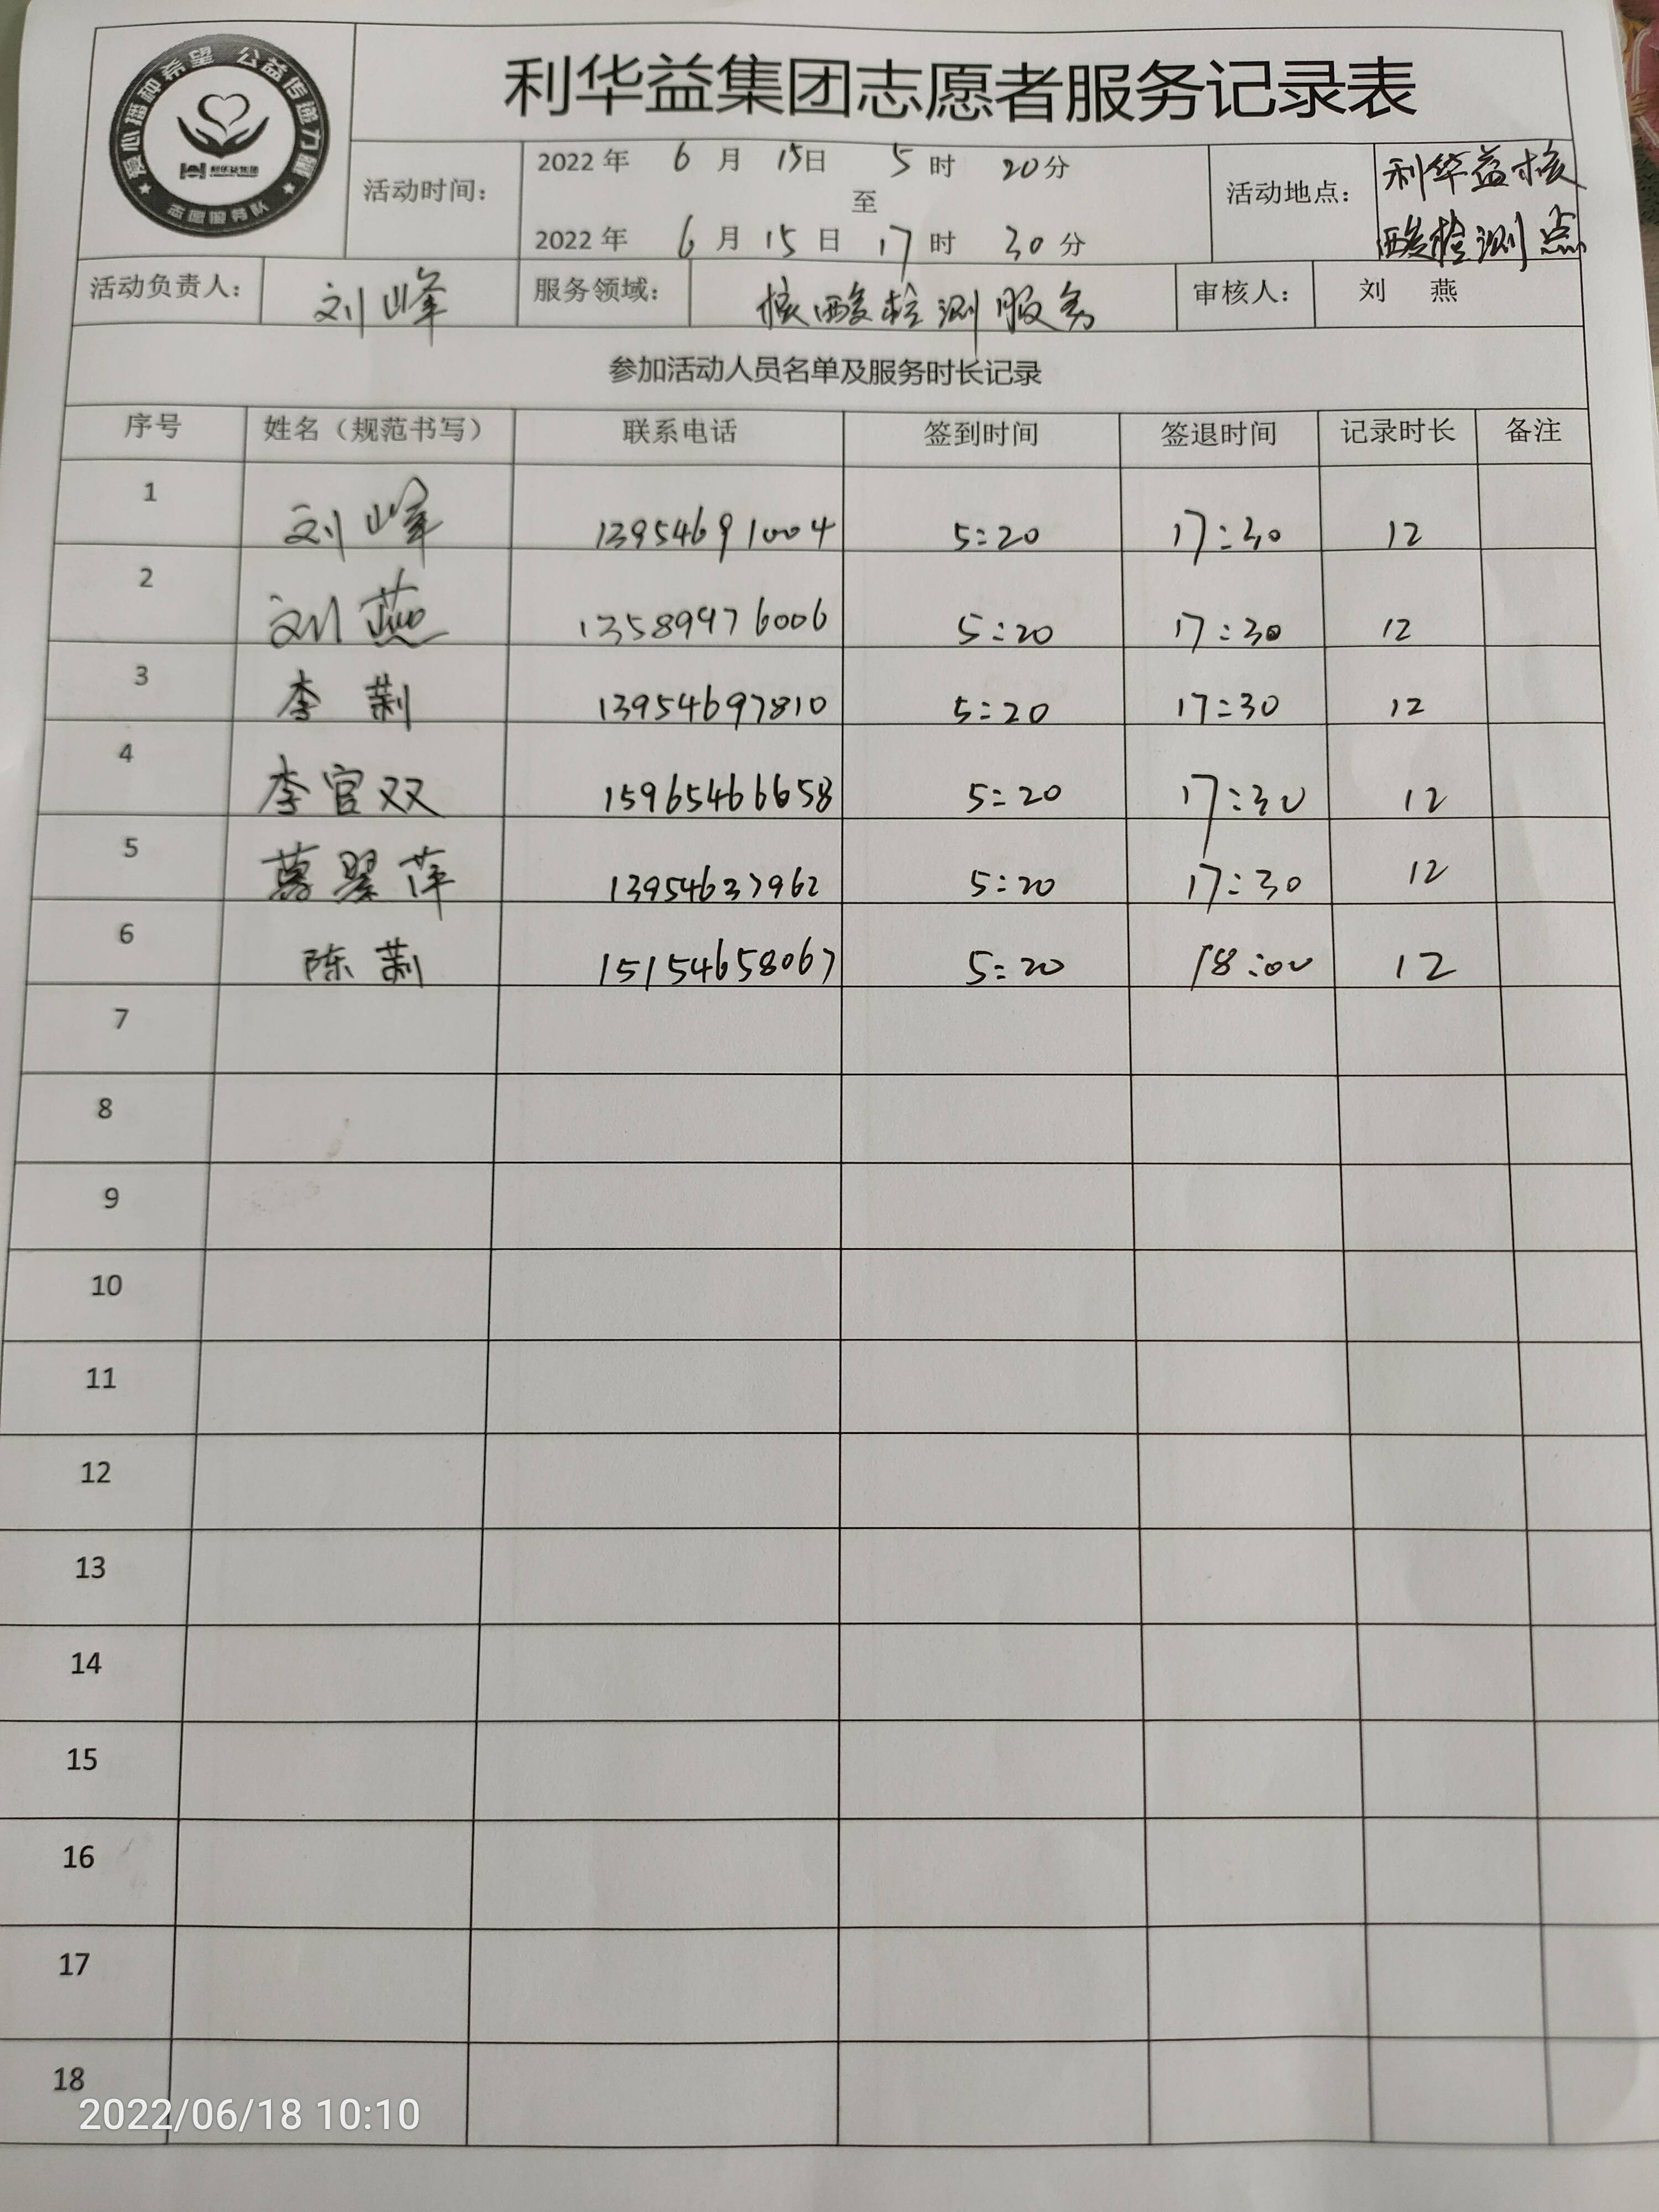 爱心播种希望 公益传递力量
利华益集团
志愿服务队
利华益集团志愿者服务记录表
活动时间：
2022年 6月 15日 5时 20分
至
2022年 6月 15日 17时 30分
活动地点：
利华益核
酸检测点
活动负责人： 刘峰 服务领域： 核酸检测服务 审核人： 刘 燕
参加活动人员名单及服务时长记录
序号 姓名（规范书写） 联系电话 签到时间 签退时间 记录时长 备注
1 刘峰 13954691004 5:20 17:30 12
2 刘燕 13589976006 5:20 17:30 12
3 李莉 13954697810 5:20 17:30 12
4 李官双 15965466658 5:20 17:30 12
5 翠萍 13954637962 5:20 17:30 12
6 陈莉 15154658067 5:20 18:00 12
7
8
9
10
11
12
13
14
15
16
17
18
2022/06/18 10:10